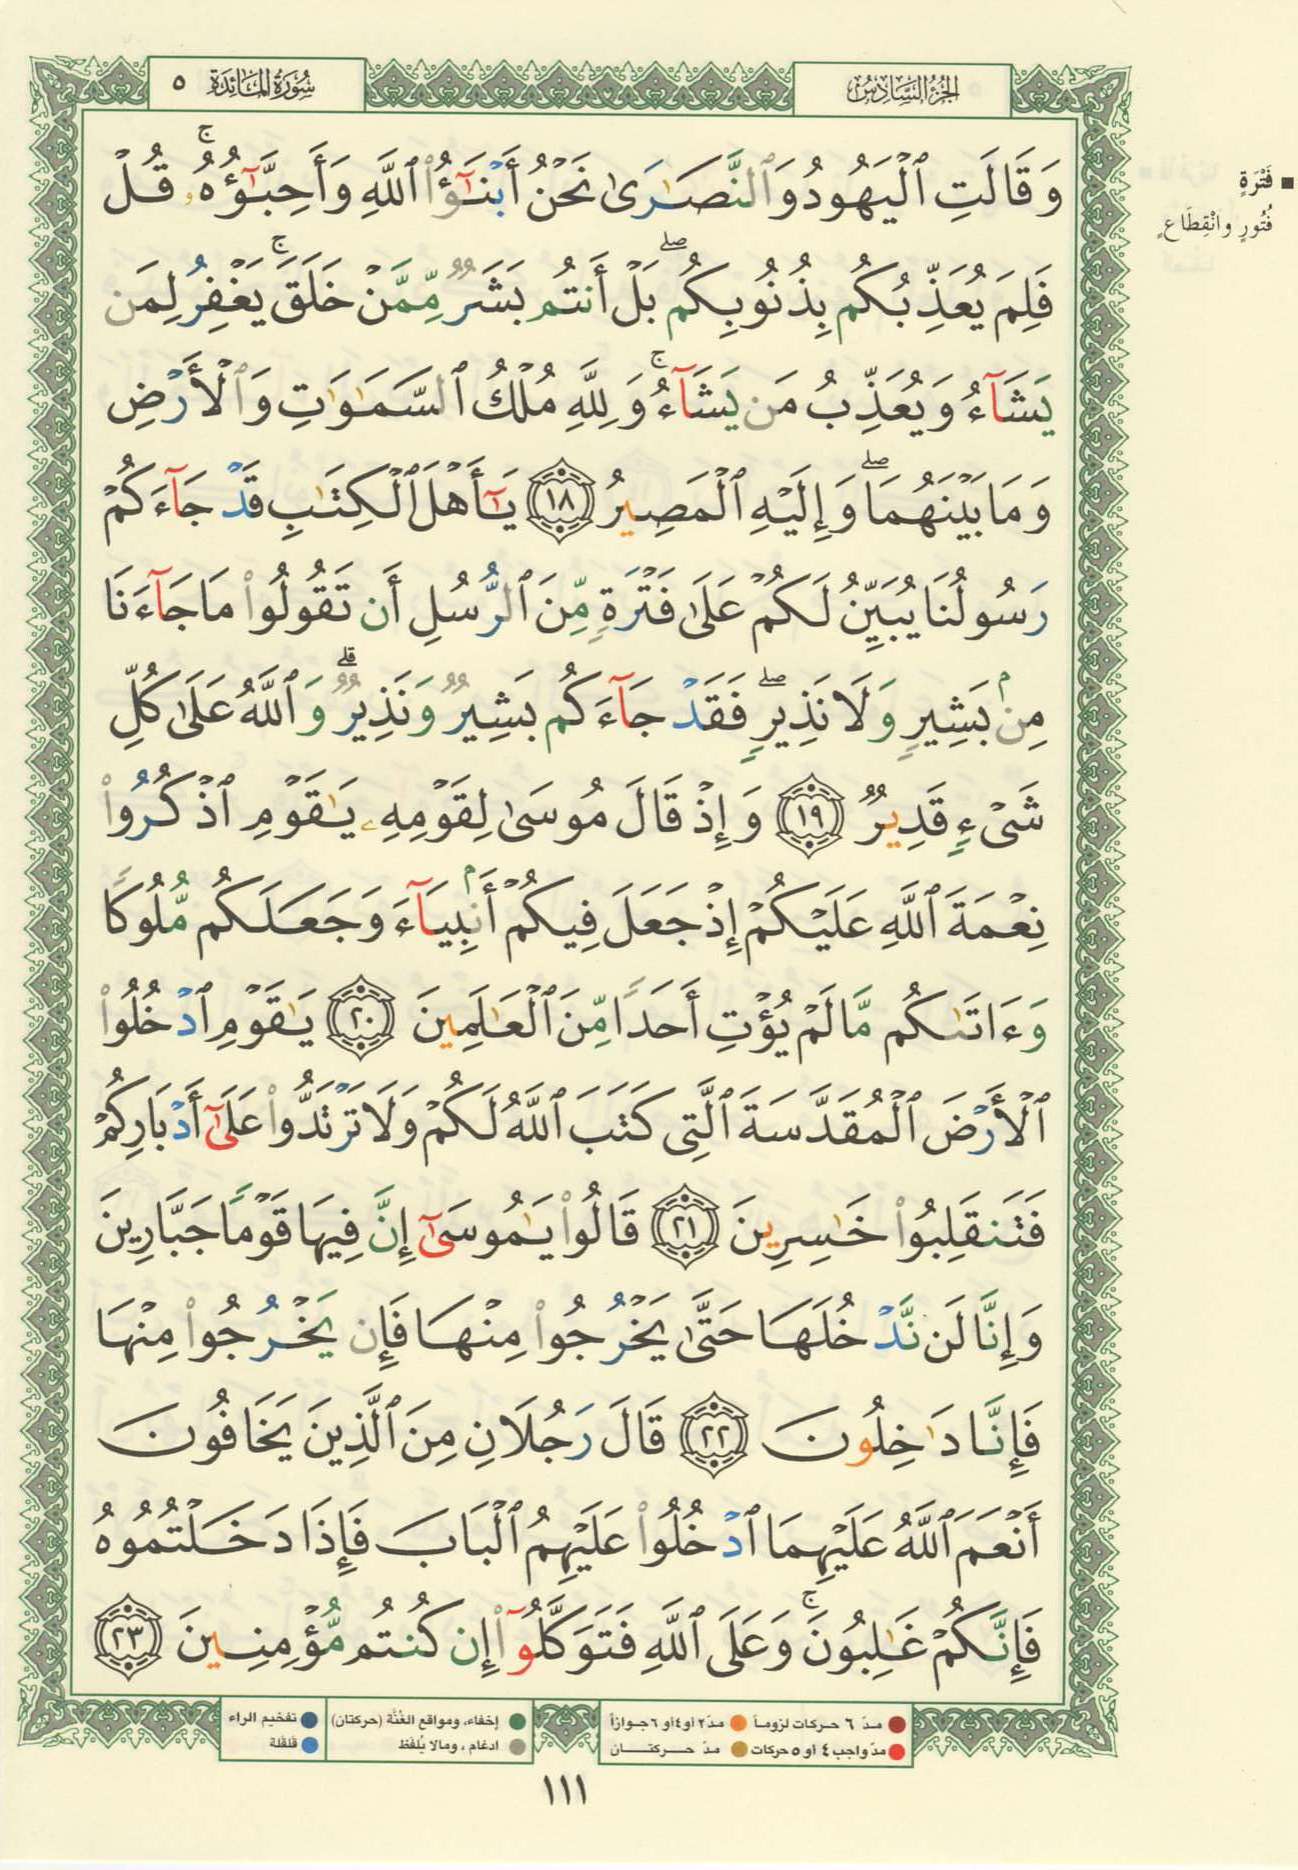 الجزء السادس
سورة المائدة ٥
وَقَالَتِ ٱلْيَهُودُ وَٱلنَّصَـٰرَىٰ نَحْنُ أَبْنَـٰٓؤُا۟ ٱللَّهِ وَأَحِبَّـٰٓؤُهُۥ ۚ قُلْ
فَلِمَ يُعَذِّبُكُم بِذُنُوبِكُم ۖ بَلْ أَنتُم بَشَرٌ مِّمَّنْ خَلَقَ ۚ يَغْفِرُ لِمَن
يَشَآءُ وَيُعَذِّبُ مَن يَشَآءُ ۚ وَلِلَّهِ مُلْكُ ٱلسَّمَـٰوَٰتِ وَٱلْأَرْضِ
وَمَا بَيْنَهُمَا ۖ وَإِلَيْهِ ٱلْمَصِيرُ ١٨ يَـٰٓأَهْلَ ٱلْكِتَـٰبِ قَدْ جَآءَكُمْ
رَسُولُنَا يُبَيِّنُ لَكُمْ عَلَىٰ فَتْرَةٍ مِّنَ ٱلرُّسُلِ أَن تَقُولُوا۟ مَا جَآءَنَا
مِنۢ بَشِيرٍ وَلَا نَذِيرٍ ۖ فَقَدْ جَآءَكُم بَشِيرٌ وَنَذِيرٌ ۗ وَٱللَّهُ عَلَىٰ كُلِّ
شَىْءٍ قَدِيرٌ ١٩ وَإِذْ قَالَ مُوسَىٰ لِقَوْمِهِۦ يَـٰقَوْمِ ٱذْكُرُوا۟
نِعْمَةَ ٱللَّهِ عَلَيْكُمْ إِذْ جَعَلَ فِيكُمْ أَنۢبِيَآءَ وَجَعَلَكُم مُّلُوكًا
وَءَاتَىٰكُم مَّا لَمْ يُؤْتِ أَحَدًا مِّنَ ٱلْعَـٰلَمِينَ ٢٠ يَـٰقَوْمِ ٱدْخُلُوا۟
ٱلْأَرْضَ ٱلْمُقَدَّسَةَ ٱلَّتِى كَتَبَ ٱللَّهُ لَكُمْ وَلَا تَرْتَدُّوا۟ عَلَىٰٓ أَدْبَارِكُمْ
فَتَنقَلِبُوا۟ خَـٰسِرِينَ ٢١ قَالُوا۟ يَـٰمُوسَىٰٓ إِنَّ فِيهَا قَوْمًا جَبَّارِينَ
وَإِنَّا لَن نَّدْخُلَهَا حَتَّىٰ يَخْرُجُوا۟ مِنْهَا فَإِن يَخْرُجُوا۟ مِنْهَا
فَإِنَّا دَٰخِلُونَ ٢٢ قَالَ رَجُلَانِ مِنَ ٱلَّذِينَ يَخَافُونَ
أَنْعَمَ ٱللَّهُ عَلَيْهِمَا ٱدْخُلُوا۟ عَلَيْهِمُ ٱلْبَابَ فَإِذَا دَخَلْتُمُوهُ
فَإِنَّكُمْ غَـٰلِبُونَ ۚ وَعَلَى ٱللَّهِ فَتَوَكَّلُوٓا۟ إِن كُنتُم مُّؤْمِنِينَ ٢٣
▪ فَتْرَةٍ
فُتُورٍ وانْقِطَاعٍ
مدّ ٦ حركات لزوماً مدّ ٢ أو ٤ أو ٦ جوازاً
مدّ واجب ٤ أو ٥ حركات مدّ حركتان
إخفاء، ومواقع الغُنَّة (حركتان) تفخيم الراء
ادغام، ومالا يُلفظ قلقلة
١١١